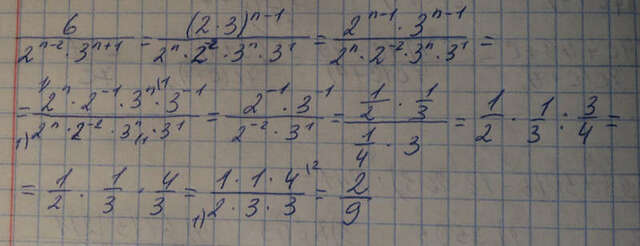 6 / 2^{n-2} · 3^{n+1} = (2 · 3)^{n-1} / 2^n · 2^{-2} · 3^n · 3^1 = 2^{n-1} · 3^{n-1} / 2^n · 2^{-2} · 3^n · 3^1 =
= 2^n · 2^{-1} · 3^n · 3^{-1} / 2^n · 2^{-2} · 3^n · 3^1 = 2^{-1} · 3^{-1} / 2^{-2} · 3^1 = 1/2 · 1/3 / 1/4 · 3 = 1/2 · 1/3 : 3/4 =
= 1/2 · 1/3 · 4/3 = 1 · 1 · 4 / 2 · 3 · 3 = 2/9